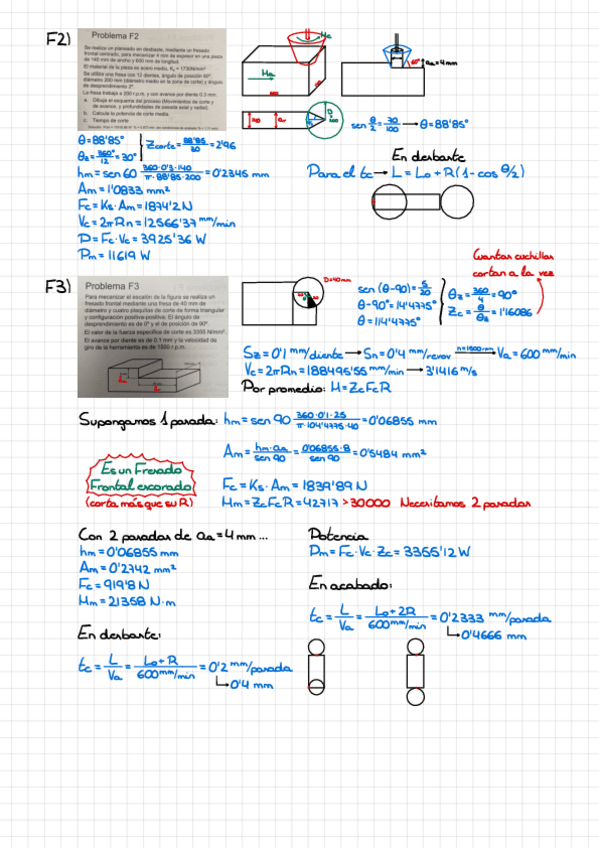 F2)
Problema F2
Se realiza un planeado en desbaste, mediante un fresado
frontal centrado, para mecanizar 4 mm de espesor en una pieza
de 140 mm de ancho y 600 mm de longitud.
El material de la pieza es acero medio, Ks = 1730N/mm²
Se utiliza una fresa con 12 dientes, ángulo de posición 60º
diámetro 200 mm (diámetro medio en la zona de corte) y ángulo
de desprendimiento 2º.
La fresa trabaja a 200 r.p.m. y con avance por diente 0.3 mm.
a. Dibuja el esquema del proceso (Movimientos de corte y
de avance, y profundidades de pasada axial y radial)
b. Calcula la potencia de corte media.
c. Tiempo de corte
Mc
Ma
60°
aa=4mm
D=200
sen θ/2 = 70/100 → θ=88'85°
θ=88'85°
θz=360°/12=30°
Zcorte=88'85/30=2'96
hm=sen 60 360·0'3·140/π·88'85·200=0'2346 mm
Am=1'0833 mm²
Fc=Ks·Am=1874'2N
Vc=2πRn=125663'7 mm/min
P=Fc·Vc=3925'36 W
Pm=11619 W
En desbaste
Para el tc → L=Lo+R(1-cos θ/2)
F3)
Problema F3
Para mecanizar el escalón de la figura se realiza un
fresado frontal mediante una fresa de 40 mm de
diámetro y cuatro plaquitas de corte de forma triangular
y configuración positiva-positiva. El ángulo de
desprendimiento es de 0º y el de posición de 90º.
El valor de la fuerza específica de corte es 3355 N/mm².
El avance por diente es de 0.1 mm y la velocidad de
giro de la herramienta es de 1500 r.p.m.
D=40mm
sen (θ-90)=5/20
θ-90°=14'4775°
θ=114'4775°
θz=360/4=90°
Zc=θ/θz=1'16086
Cuantas cuchillas
cortan a la vez
Sz=0'1 mm/diente → Sn=0'4 mm/revov → Va=600 mm/min
Vc=2πRn=188495'55 mm/min → 3'1416 m/s
Por promedio: M=ZcFcR
Supongamos 1 pasada: hm=sen 90 360·0'1·25/π·104'4775·40=0'06855 mm
Am=hm·aa/sen 90=0'06855·8/sen 90=0'5484 mm²
Es un Fresado
Frontal escorado
(corta más que su R)
Fc=Ks·Am=1839'89N
Mm=ZcFcR=42717 >30000 Necesitamos 2 pasadas
Con 2 pasadas de aa=4mm...
hm=0'06855 mm
Am=0'2742 mm²
Fc=919'8N
Mm=21358 N·m
Potencia
Pm=Fc·Vc·Zc=3355'12W
En acabado:
tc=L/Va=Lo+2R/600mm/min=0'2333 mm/pasada
0'4666 mm
En desbaste:
tc=L/Va=Lo+R/600mm/min=0'2 mm/pasada
0'4 mm